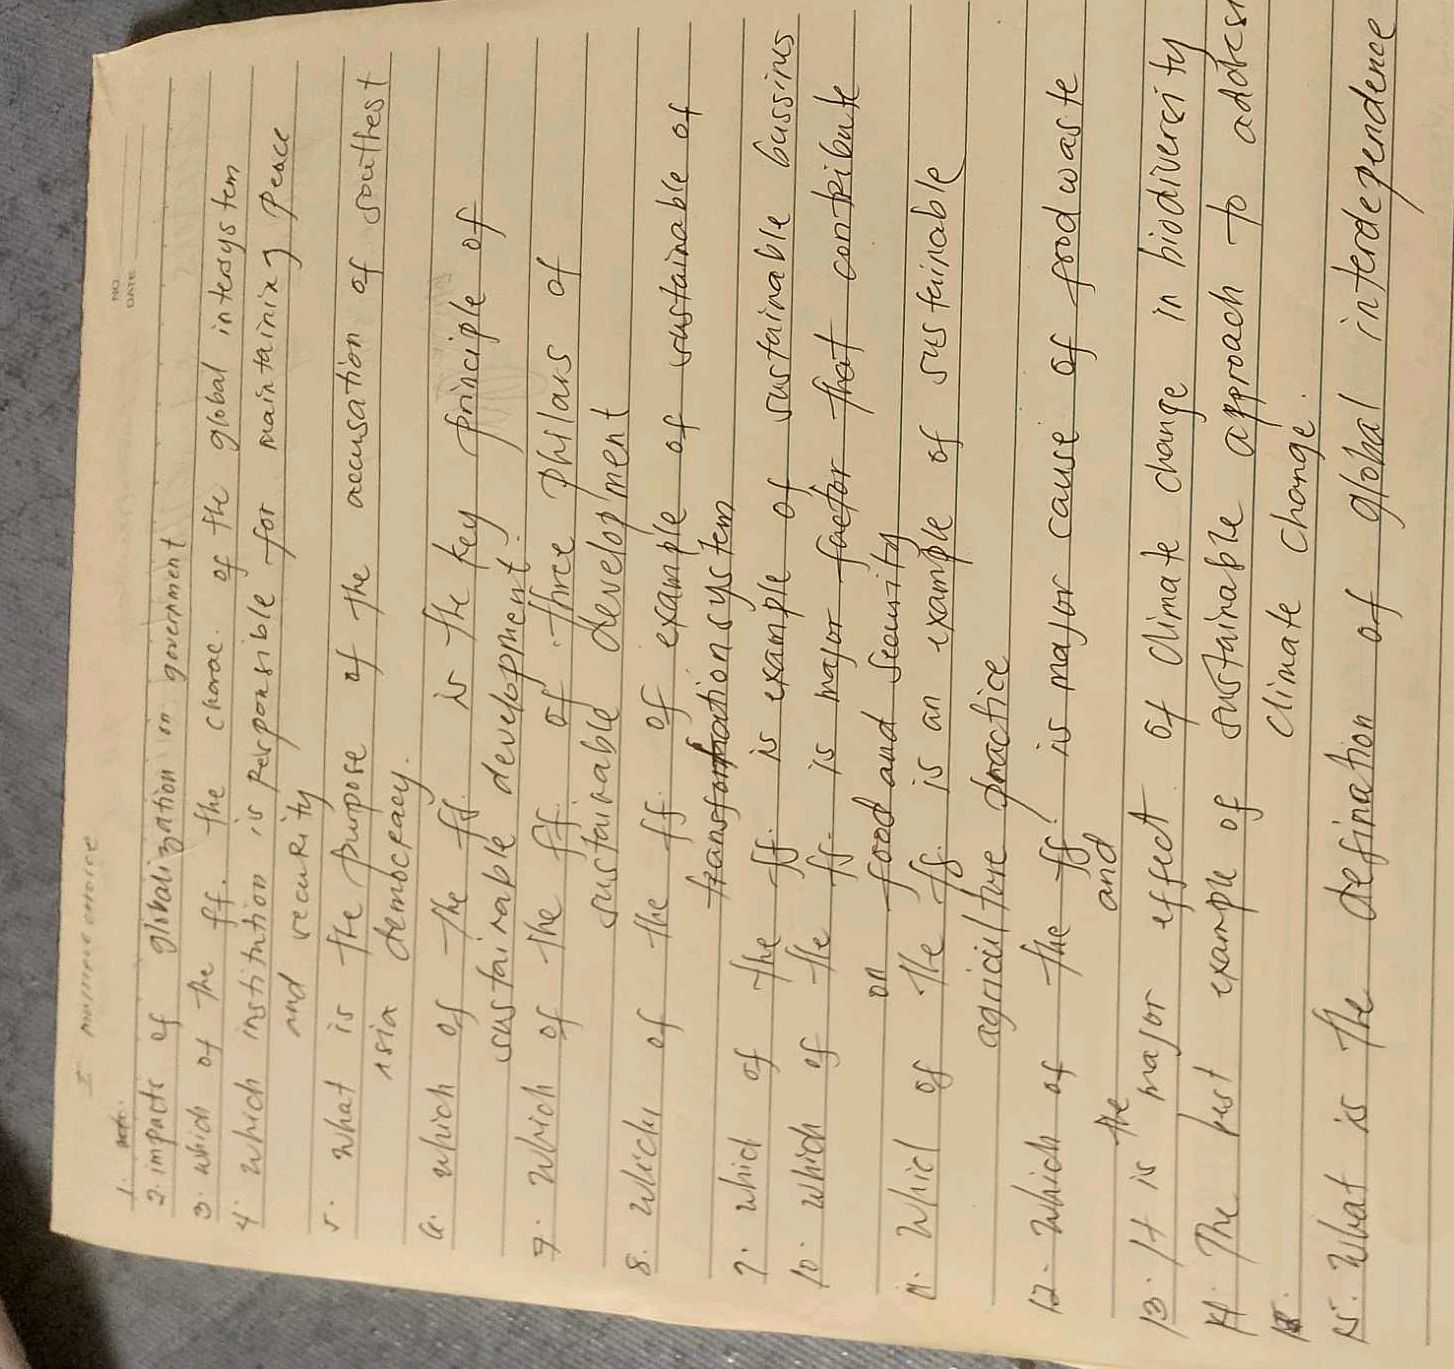 NO.
DATE
I
1.
2. impacts of glibalization in government
3. which of the ff. the charac. of the global intersystem
4. which institution is responsible for maintaining peace
and security
5. what is the purpose of the accusation of southest
asia democracy.
6. which of the ff. is the key principle of
sustainable development.
7. which of the ff. of three philars of
sustainable development
8. which of the ff. of example of sustainable of
transfortationsystem
9. which of the ff. is example of sustainable bussines
10. which of the ff. is major factor that contribute
on food and security
11. which of the ff. is an example of sustainable
agricul ture practice
12. which of the ff. is major cause of foodwaste
and
13. It is the major effect of climate change in biodivercity
14. The best example of sustainable approach to address
climate change.
15. what is the defination of global interdependence